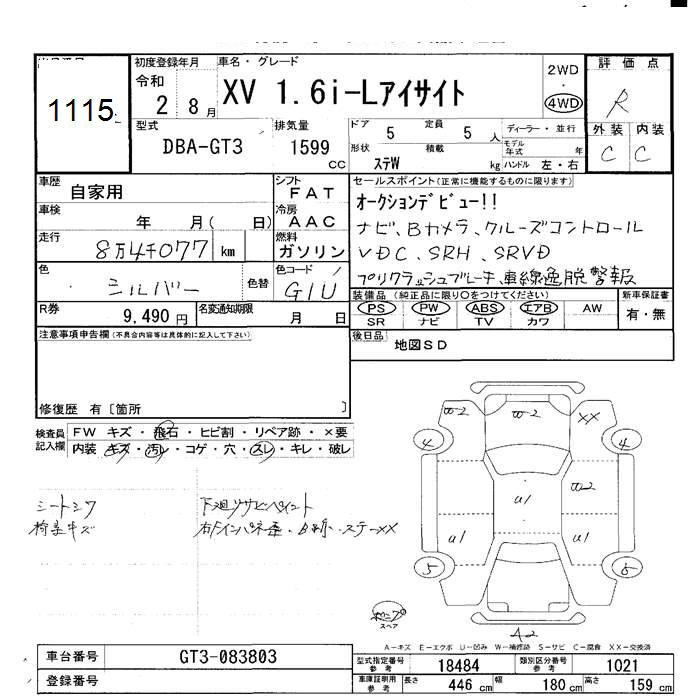 1115
初度登録年月
令和
2 8月
車名・グレード
XV 1.6i-Lアイサイト
2WD
・
4WD
評価点
R
外装 内装
C C
型式
DBA-GT3
排気量
1599
CC
ドア 5 定員 5 人
形状 ステW 積載 kg
ディーラー・並行
モデル年式 年
ハンドル 左・右
車歴
自家用
シフト
FAT
車検
年 月( 日)
冷房
AAC
走行
8万4千077 km
燃料
ガソリン
色
シルバー
色替
色コード
G1U
R券
9,490円
名変通知期限
月 日
セールスポイント(正常に機能するものに限ります)
オークションデビュー!!
ナビ、Bカメラ、クルーズコントロール
VDC、SRH、SRVD
プリクラッシュブレーキ、車線逸脱警報
装備品(純正品に限り○をつけてください)
PS PW ABS エアB AW
SR ナビ TV カワ
新車保証書
有・無
後日品
地図SD
注意事項申告欄(不具合内容等は具体的に記入して下さい)
修復歴 有〔箇所 〕
検査員
記入欄
FW キズ・飛石・ヒビ割・リペア跡・×要
内装 キズ・汚レ・コゲ・穴・スレ・キレ・破レ
シートシワ
下廻りサビペイント
W2
W2
XX
4
4
U1
W2
U1
U1
5
6
スペア
A2
A-キズ E-エクボ U-凹み W-補修跡 S-サビ C-腐食 XX-交換済
車台番号
GT3-083803
登録番号
型式指定番号
参考
18484
類別区分番号
参考
1021
車庫証明用
参考
長さ 446 cm 幅 180 cm 高さ 159 cm